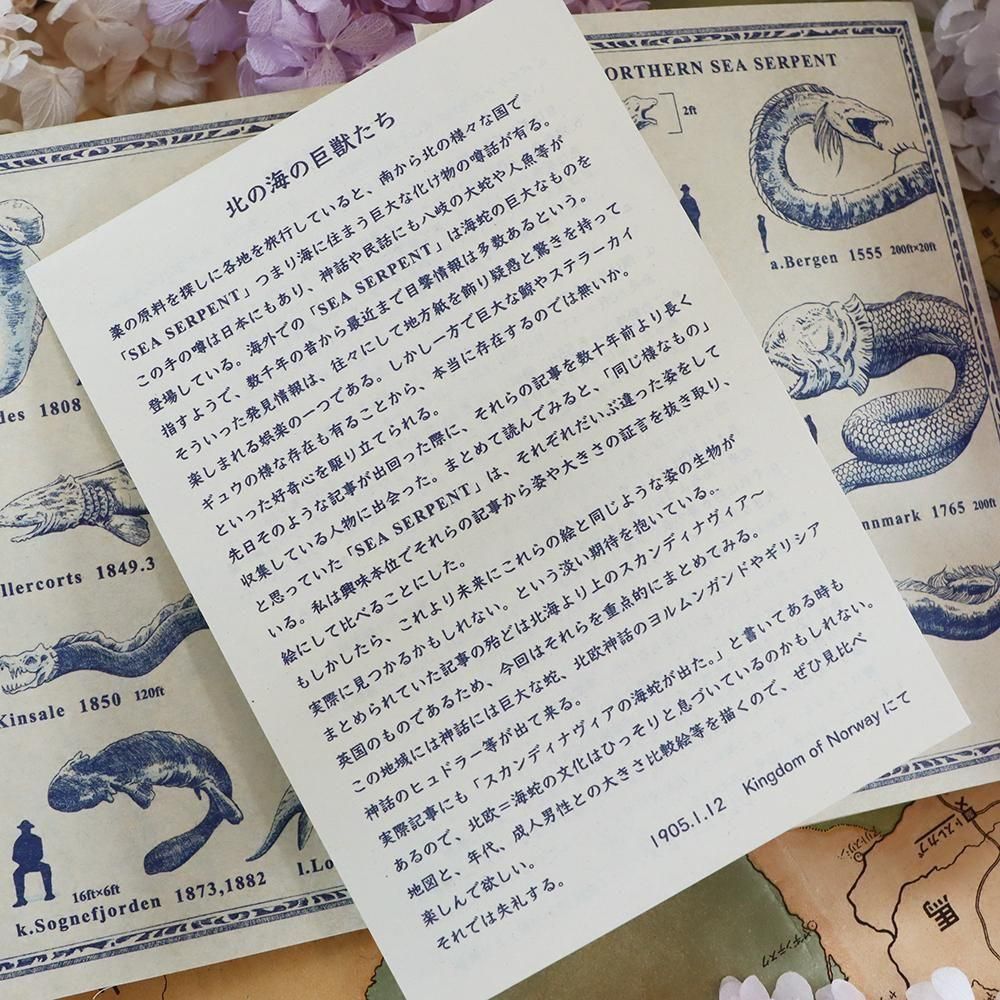 北の海の巨獣たち
薬の原料を探しに各地を旅行していると、南から北の様々な国で
「SEA SERPENT」つまり海に住まう巨大な化け物の噂話が有る。
この手の噂は日本にもあり、神話や民話にも八岐の大蛇や人魚等が
登場している。海外での「SEA SERPENT」は海蛇の巨大なものを
指すようで、数千年の昔から最近まで目撃情報は多数あるという。
そういった発見情報は、往々にして地方紙を飾り疑惑と驚きを持って
楽しまれる娯楽の一つである。しかし一方で巨大な鯨やステラーカイ
ギュウの様な存在も有ることから、本当に存在するのでは無いか。
といった好奇心を駆り立てられる。
先日そのような記事が出回った際に、それらの記事を数十年前より長く
収集している人物に出会った。まとめて読んでみると、「同じ様なもの」
と思っていた「SEA SERPENT」は、それぞれだいぶ違った姿をして
いる。私は興味本位でそれらの記事から姿や大きさの証言を抜き取り、
絵にして比べることにした。
もしかしたら、これより未来にこれらの絵と同じような姿の生物が
実際に見つかるかもしれない。という淡い期待を抱いている。
まとめられていた記事の殆どは北海より上のスカンディナヴィア～
英国のものであるため、今回はそれらを重点的にまとめてみる。
この地域には神話には巨大な蛇、北欧神話のヨルムンガンドやギリシア
神話のヒュドラー等が出て来る。
実際記事にも「スカンディナヴィアの海蛇が出た。」と書いてある時も
あるので、北欧＝海蛇の文化はひっそりと息づいているのかもしれない。
地図と、年代、成人男性との大きさ比較絵等を描くので、ぜひ見比べ
楽しんで欲しい。
それでは失礼する。
1905.1.12 Kingdom of Norway にて
ORTHERN SEA SERPENT
2ft
a.Bergen 1555 200ft×20ft
nnmark 1765 200ft
des 1808
llercorts 1849.3
Kinsale 1850 120ft
16ft×6ft
k.Sognefjorden 1873,1882
l.Lo
馬